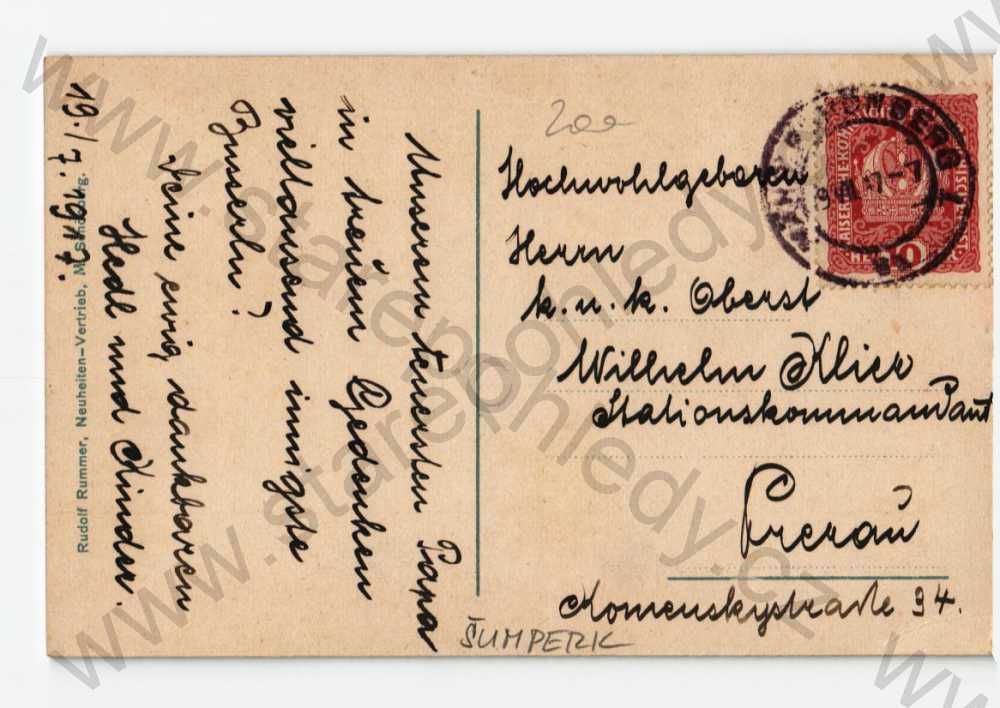 19./7. 1917.
Unserem teuersten Papa
in treuem Gedenken
vieltausend innigste
Busserln!
Seine ewig dankbaren
Hedl und Kinder.
Rudolf Rummer, Neuheiten-Vertrieb, M. Schönberg.
200
Hochwohlgeboren
Herrn
k. u. k. Oberst
Wilhelm Klier
Stationskommandant
Prerau
Komenskystraße 94.
ŠUMPERK
10
www.starepohledy.cz
www.starepohledy.cz